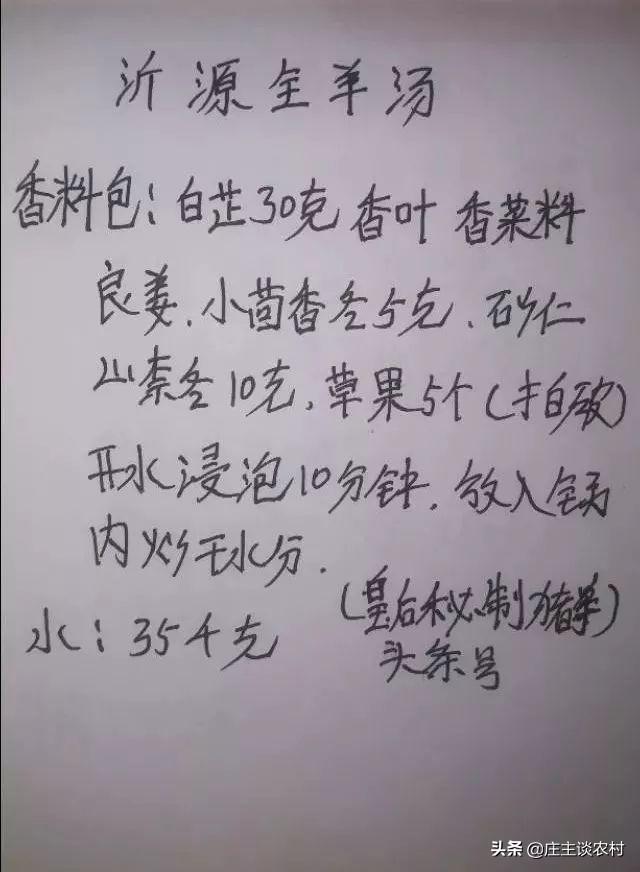 沂源全羊汤
香料包：白芷30克 香叶 香菜料
良姜、小茴香各5克、砂仁
山柰各10克，草果5个(拍破)
开水浸泡10分钟，放入锅
内炒干水分．
水：35千克
(皇后秘制猪羊)
头条号
头条 @庄主谈农村